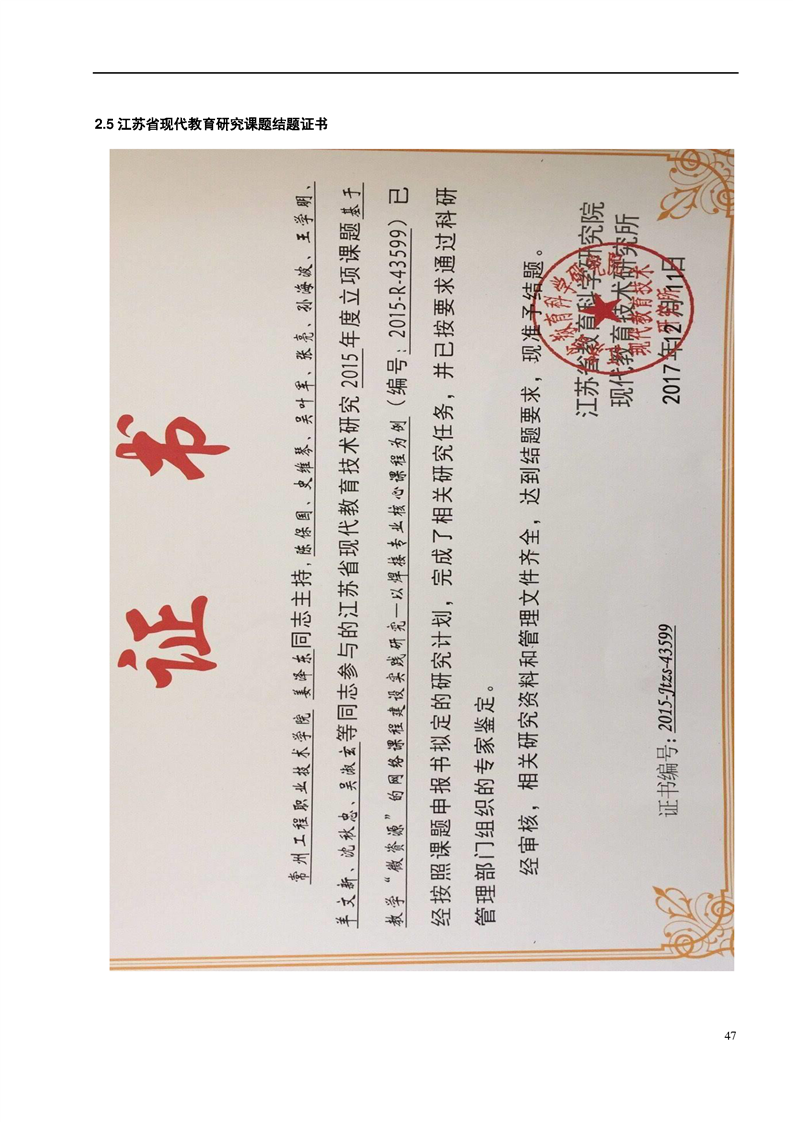 2.5 江苏省现代教育研究课题结题证书
证 书
常州工程职业技术学院 姜泽东同志主持,陈保国、史维琴、吴叶军、张亮、孙海波、王学明、
羊文新、沈秋忠、吴淑玄等同志参与的江苏省现代教育技术研究 2015 年度立项课题基于
教学“微资源”的网络课程建设实践研究—以焊接专业核心课程为例(编号:2015-R-43599)已
经按照课题申报书拟定的研究计划,完成了相关研究任务,并已按要求通过科研
管理部门组织的专家鉴定。
经审核,相关研究资料和管理文件齐全,达到结题要求,现准予结题。
江苏省教育科学研究院
现代教育技术研究所
2017 年12 月 11日
证书编号:2015-Jtzs-43599
47